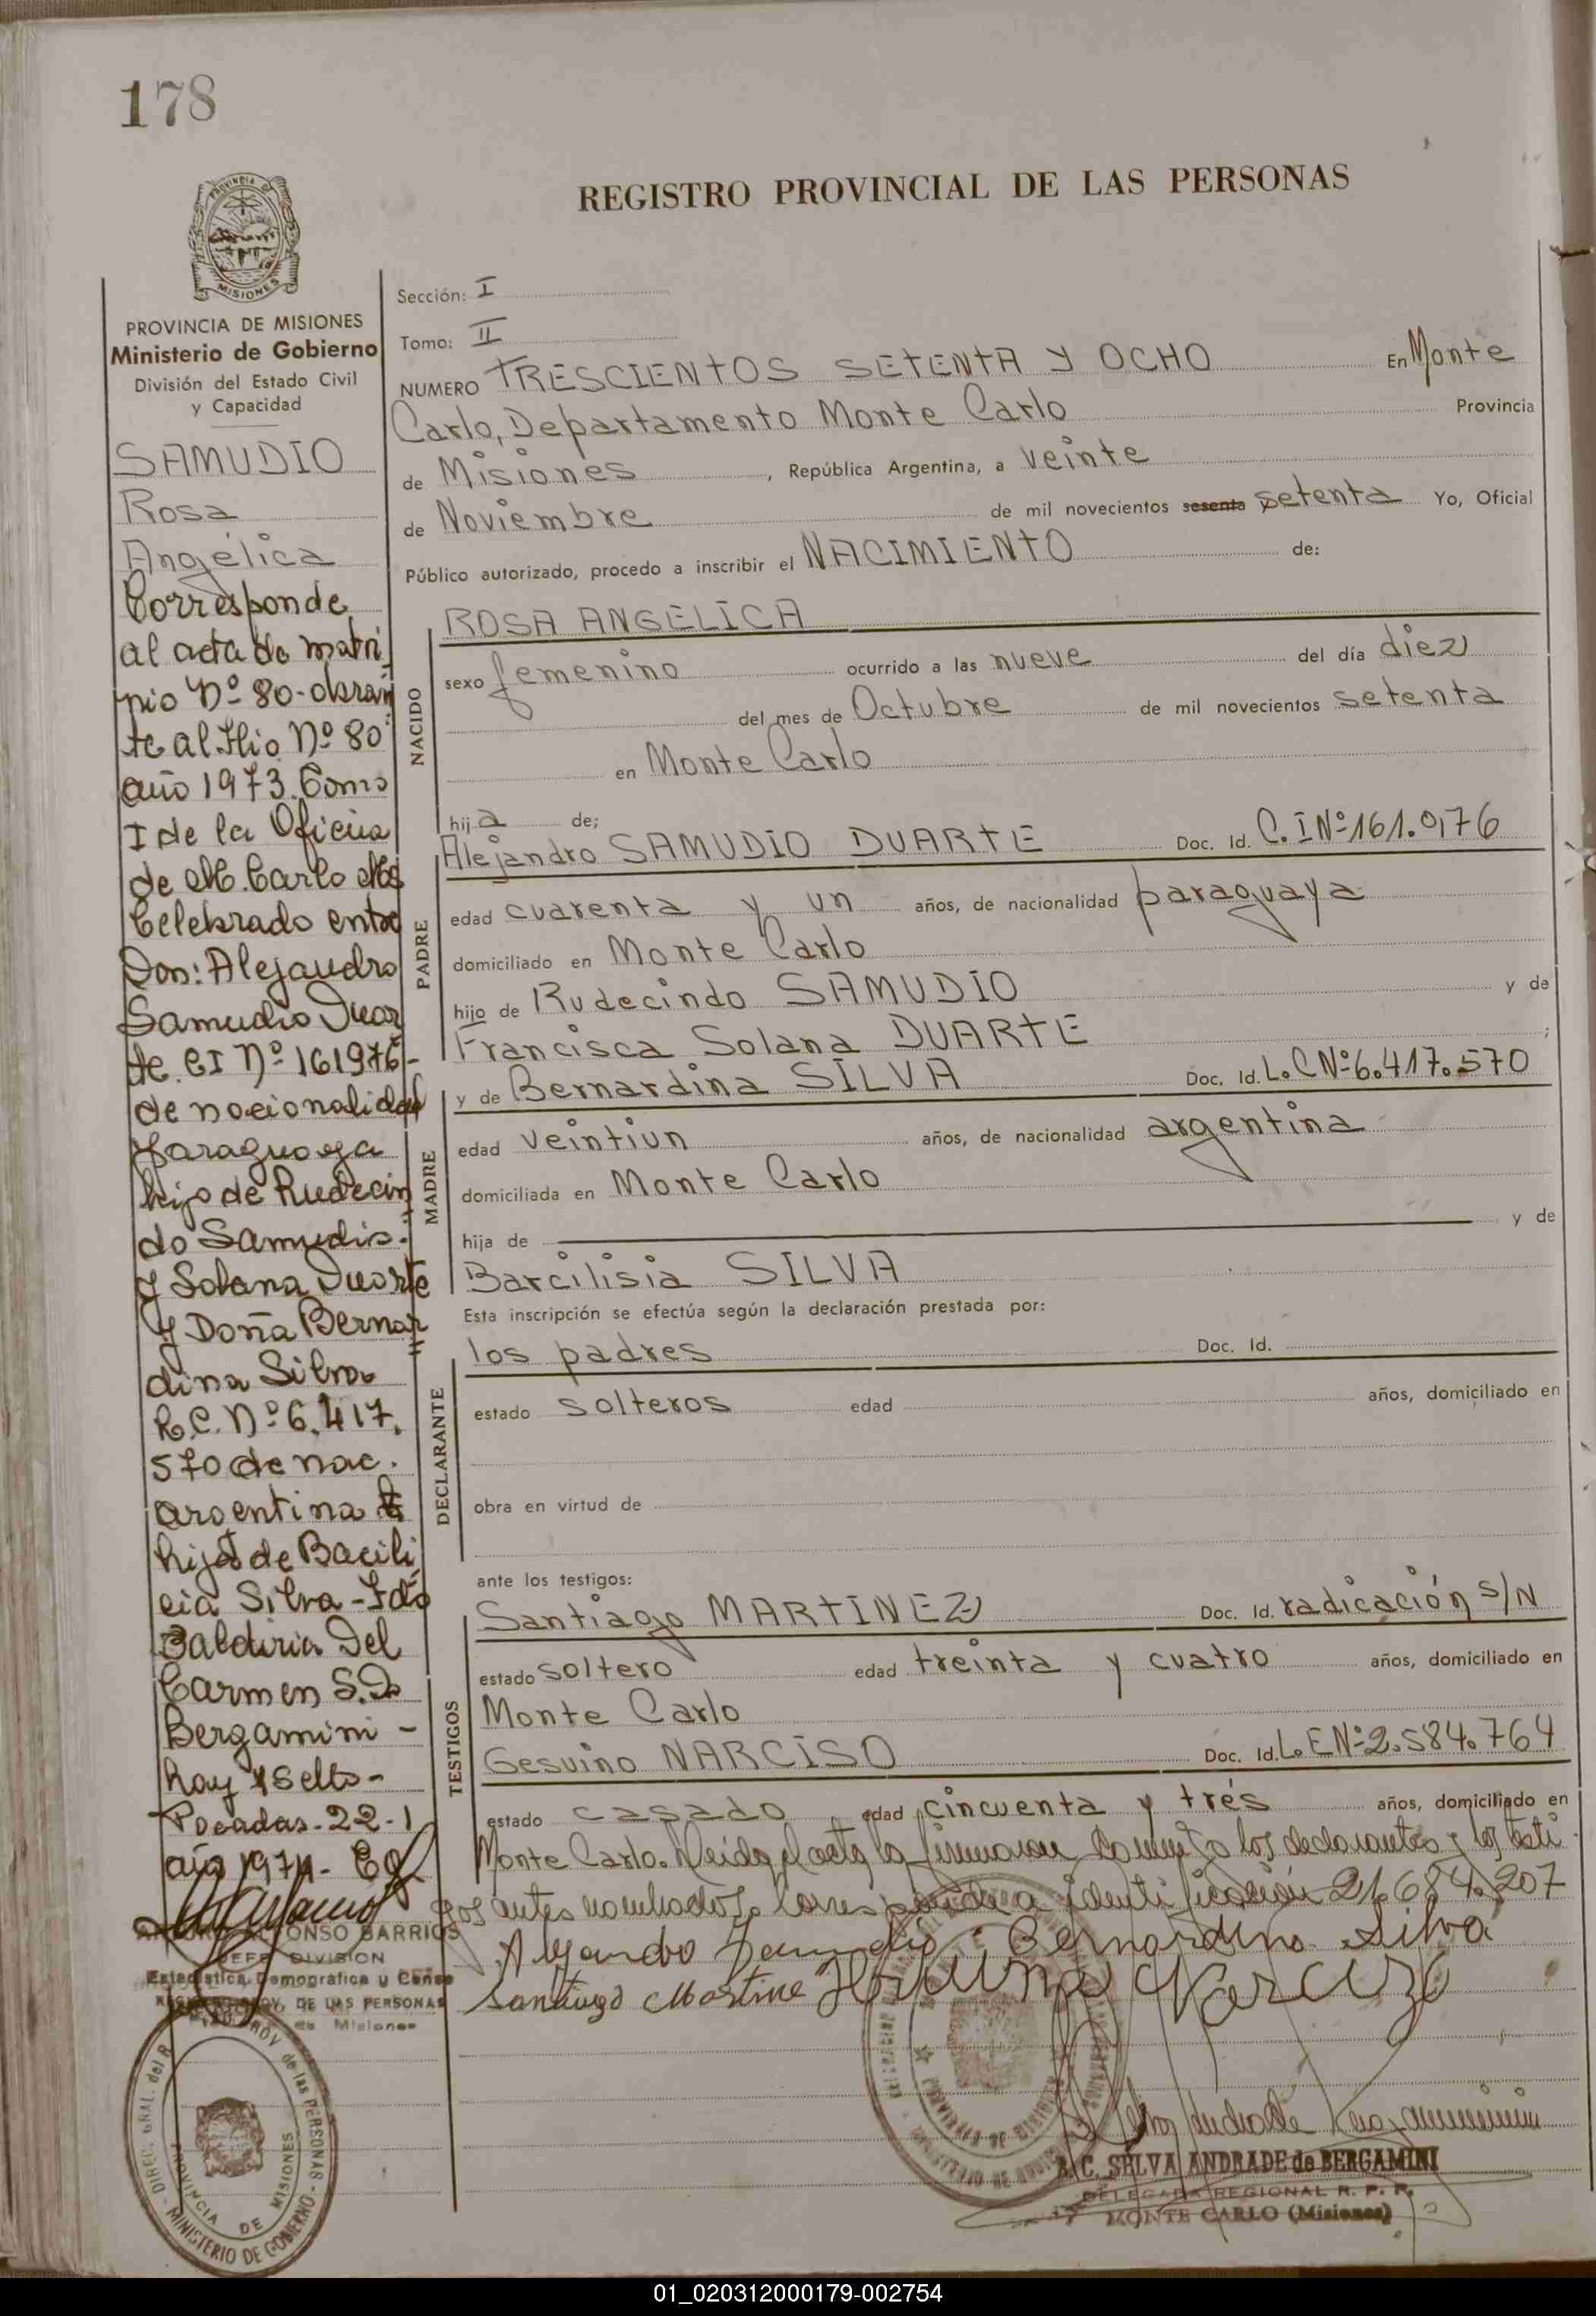 178
REGISTRO PROVINCIAL DE LAS PERSONAS
PROVINCIA
MISIONES
PROVINCIA DE MISIONES
Ministerio de Gobierno
División del Estado Civil
y Capacidad
SAMUDIO
Rosa
Angélica
Corresponde
al acta de matri
nio Nº 80-obran
te al folio Nº 80
año 1973. Tomo
I de la Oficina
de M. Carlo Ms
Celebrado entre
Don: Alejandro
Samudio Duar
te. CI Nº 161976-
de nacionalidad
Paraguaya
hijo de Rudecin
do Samudio.
y Solana Duarte
y Doña Bernar
dina Silva
L.C. Nº 6.417.
570 de nac.
argentina
hija de Bacili
cia Silva - Fdo
Baldiria Del
Carmen S. D
Bergamini -
hay 1 Sello -
Posadas - 22-1
año 1974-
ONSO BARRIOS
JEFE DIVISION
Estadística, Demográfica y Censo
PROV. DE LAS PERSONAS
de Misiones
DIREC. GRAL. del R PROV de las PERSONAS - MINISTERIO DE GOBIERNO -
PROVINCIA DE MISIONES
Sección: I
Tomo: II
NUMERO TRESCIENTOS SETENTA Y OCHO En Monte
Carlo, Departamento Monte Carlo Provincia
de Misiones, República Argentina, a veinte
de Noviembre de mil novecientos sesenta setenta Yo, Oficial
Público autorizado, procedo a inscribir el NACIMIENTO de:
NACIDO
ROSA ANGELICA
sexo femenino ocurrido a las nueve del día diez
del mes de Octubre de mil novecientos setenta
en Monte Carlo
hija de;
PADRE
Alejandro SAMUDIO DUARTE Doc. Id. C.I Nº 161.976
edad cuarenta y un años, de nacionalidad paraguaya
domiciliado en Monte Carlo
hijo de Rudecindo SAMUDIO y de
Francisca Solana DUARTE;
MADRE
y de Bernardina SILVA Doc. Id. L.C Nº 6.417.570
edad veintiun años, de nacionalidad argentina
domiciliada en Monte Carlo
hija de y de
Barcilisia SILVA
Esta inscripción se efectúa según la declaración prestada por:
DECLARANTE
los padres Doc. Id.
estado solteros edad años, domiciliado en
obra en virtud de
ante los testigos:
TESTIGOS
Santiago MARTINEZ Doc. Id. radicación S/N
estado soltero edad treinta y cuatro años, domiciliado en
Monte Carlo
Gesuino NARCISO Doc. Id. L.E Nº 2.584.764
estado casado edad cincuenta y trés años, domiciliado en
Monte Carlo. Leida el acta la firmaron conmigo los declarantes y los testi
gos antes nombados. Corresponde a identificación 21.684.207
Alejandro Samudio Bernardina Silva
Santiago Martine Narcizo
A. C. SELVA ANDRADE de BERGAMINI
DELEGADA REGIONAL R. P. P.
MONTE CARLO (Misiones)
01_020312000179-002754